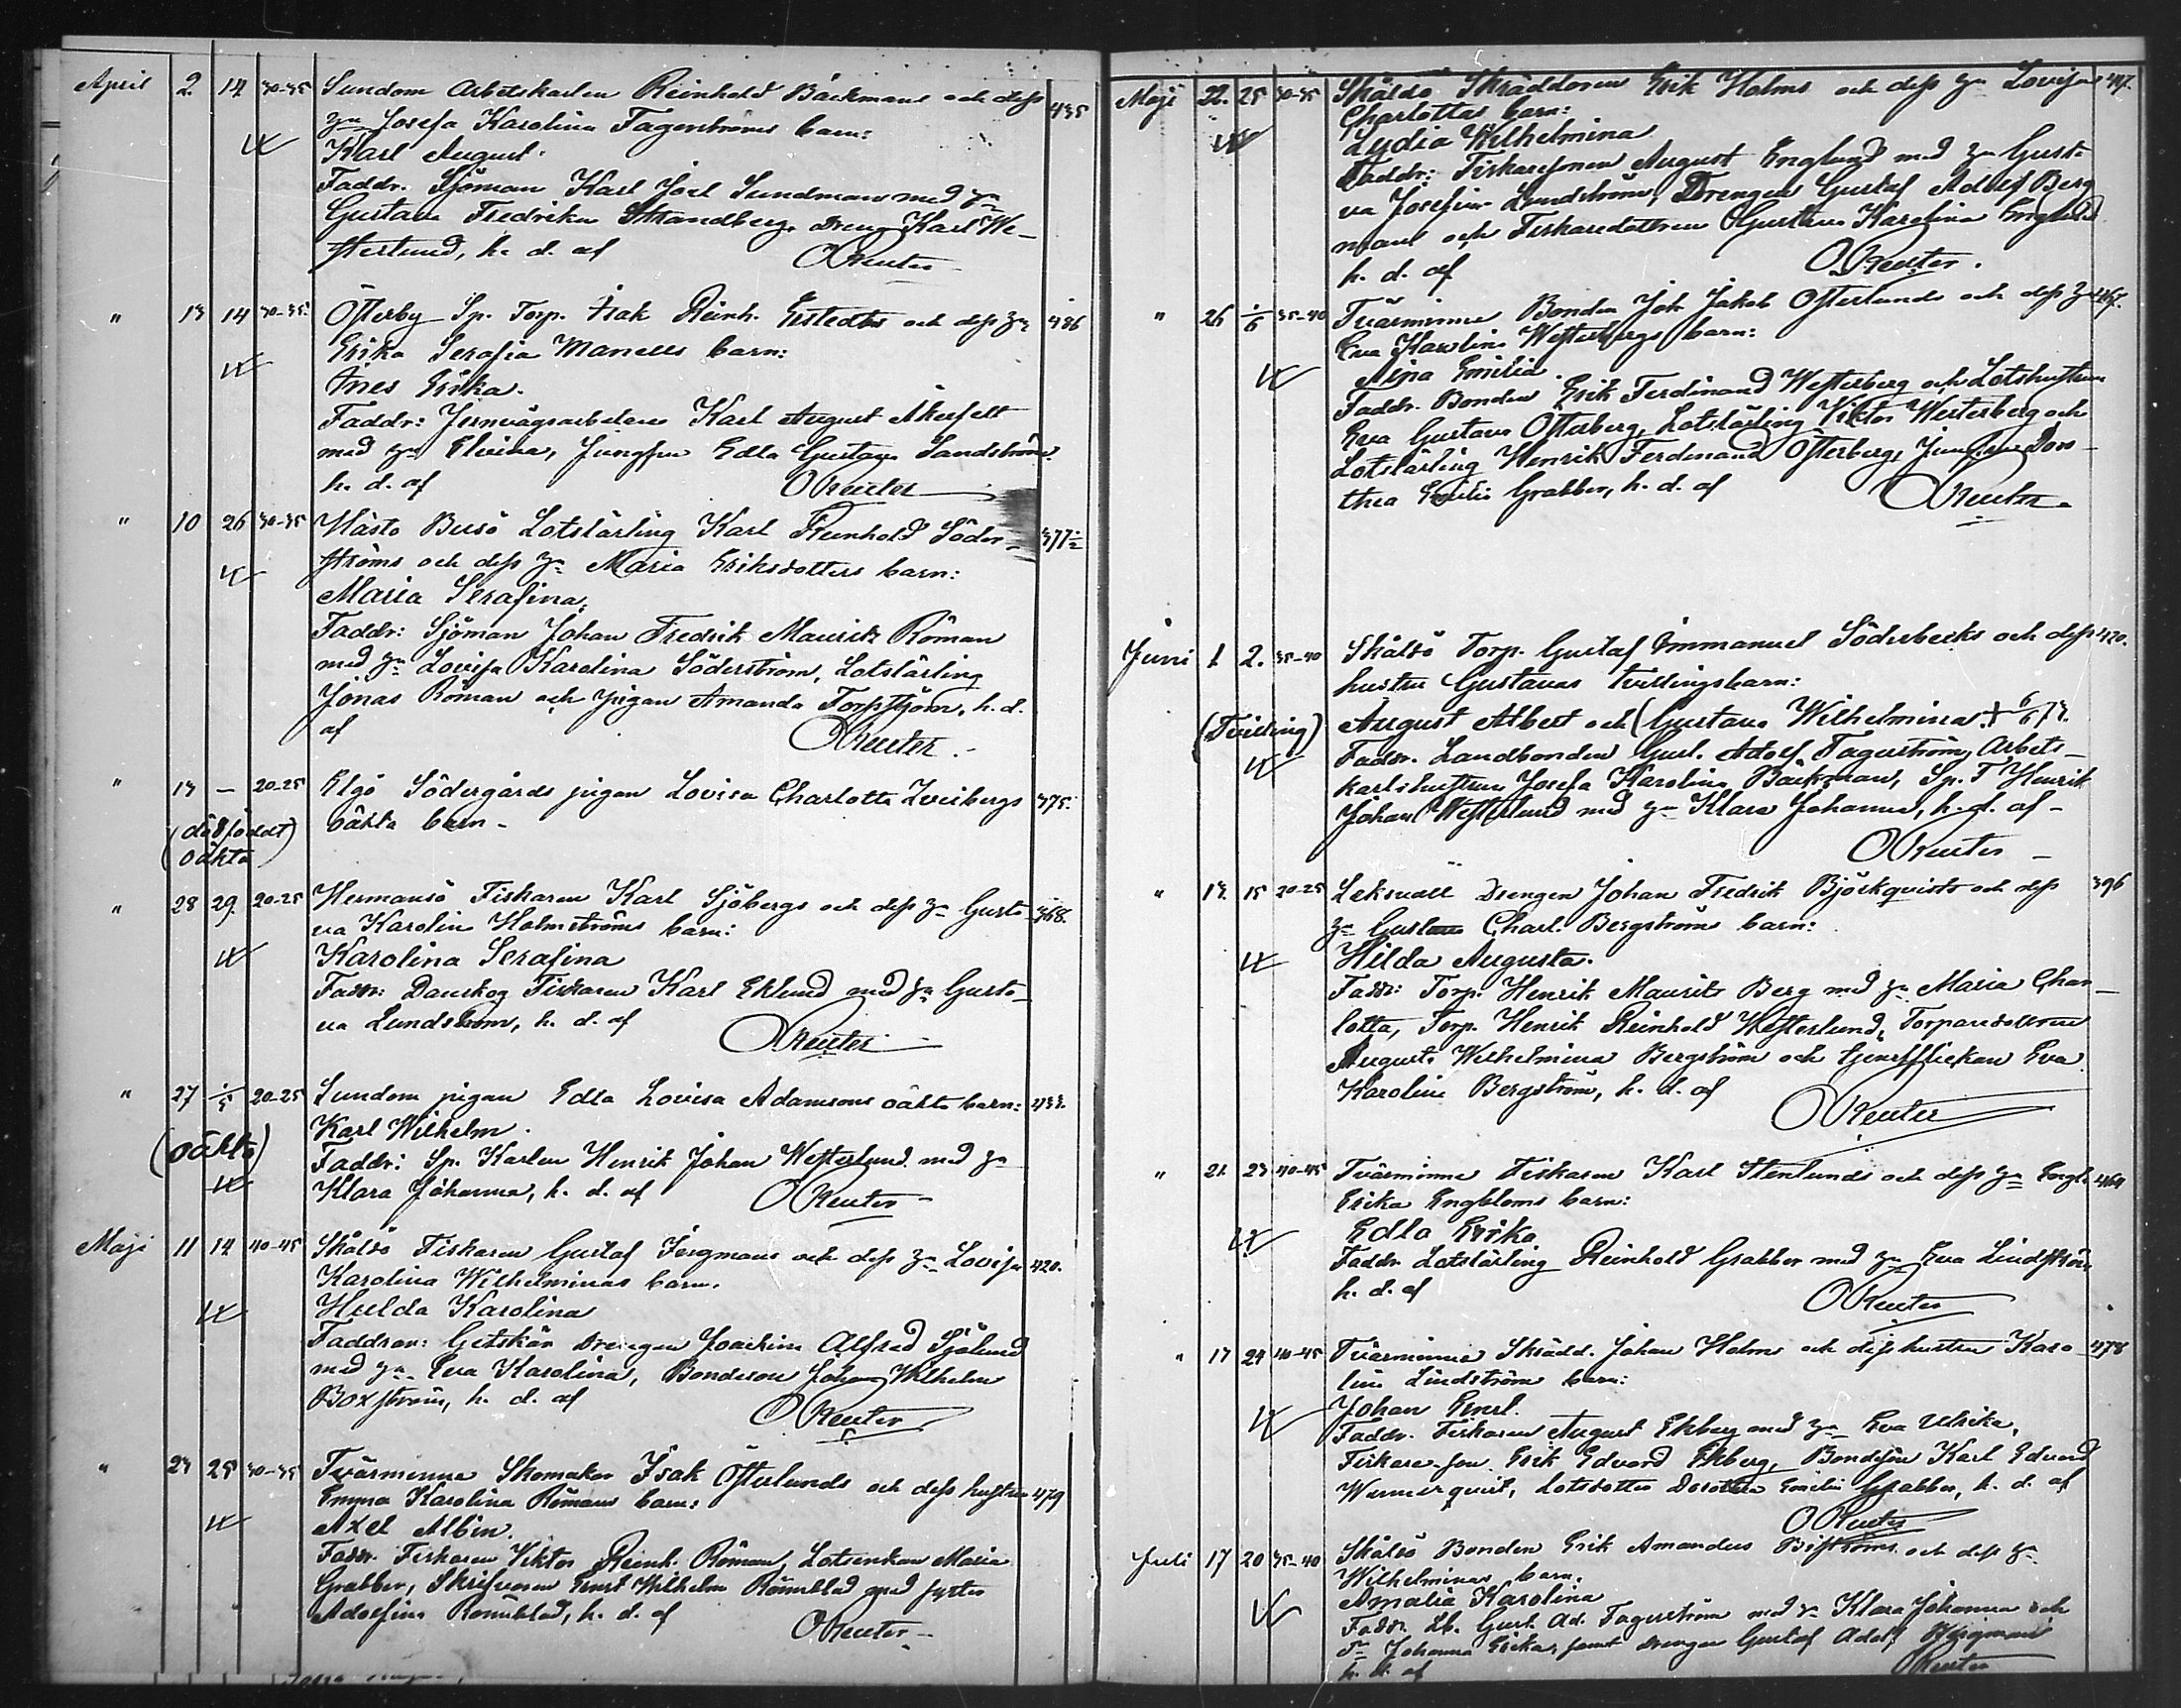 April 2. 14 30-35 Sundom Arbetskarlen Reinhold Bäckmans och dess 435
hu Josefa Karolina Fagerströms barn:
Karl August.
Faddr. Sjöman Karl Joel Sundman med hu
Gustava Fredrika Strandberg, Dreng Karl We-
sterlund, h. d. af OReuter
" 13 14 30-35 Österby Sp. Torp. Isak Reinh. Erstedts och dess hu 486
Erika Serafia Manells barn:
Ines Erika.
Faddr: Jernvägsarbetaren Karl August Åkerfelt
med hu Elvira, Jungfru Edla Gustava Sandström
h. d. af OReuter
" 10 26 30-35 Hästö Busö Lotslärling Karl Reinhold Söder- 377½
ströms och dess hu Maria Eriksdotters barn:
Maria Serafina.
Faddr: Sjöman Johan Fredrik Maurits Röman
med hu Lovisa Karolina Söderström, Lotslärling
Jonas Röman och pigan Amanda Torpström, h. d.
af OReuter
" 13 — 20-25 Elgö Södergårds pigan Lovisa Charlotta Lreibergs 375.
(dödfödt) oäkta barn-
(oäkta
" 28 29. 20-25 Hermansö Fiskaren Karl Sjöbergs och dess hu Gusta- 368.
va Karolin Holmströms barn:
Karolina Serafina
Faddr: Danskog Fiskaren Karl Eklund med hu Gusta-
va Lundström, h. d. af OReuter
" 27 1/5 20-25 Sundom pigan Edla Lovisa Adamsons oäkta barn: 433.
Karl Wilhelm.
(oäkta) Faddr: Sp. Karlen Henrik Johan Westerlund med hu
Klara Johanna, h. d. af OReuter
Maji 11 14 40-45 Skåldö Fiskaren Gustaf Jergmans och dess hu Lovisa 420.
Karolina Wilhelminas barn.
Hulda Karolina
Faddrar: Getskär Drengen Joachim Alfred Sjölund
med hu Eva Karolina, Bondeson Johan Wilhelm
Boxström, h. d. af OReuter
" 23 25 30-35 Tvärminne Skomakar Isak Österlunds och dess hustru 479
Emma Karolina Römans barn:
Axel Albin.
Faddr. Fiskaren Viktor Reinh. Röman, Lotsenkan Maria
Grabber, Skrifvaren Ernst Wilhelm Römblad med syster
Adolfina Römblad, h. d. af OReuter
Maji 22. 25 30-35 Skåldö Skräddaren Erik Holms och dess hu Lovisa 417.
Charlottas barn:
Lydia Wilhelmina
Faddr: Fiskaresonen August Englund med hu Gusta-
va Josefina Lundström, Drengen Gustaf Adolf Berg
man och Fiskaredottren Gustava Karolina Englund
h. d. af OReuter.
" 26 1/6 35-40 Tvärminne Bonden Joh Jakob Österlunds och dess hu 467.
Eva Karolina Westerbergs barn:
Aina Emilia.
Faddr. Bonden Erik Ferdinand Westerberg och Lotshustrun
Eva Gustava Österberg, Lotslärling Viktor Westerberg och
Lotslärling Henrik Ferdinand Österberg, Jungfrun Doro-
thea Emilia Grabber, h. d. af OReuter
Juni 1 2. 35-40 Skåldö Torp. Gustaf Emmanuel Söderbecks och dess 420.
hustru Gustavas tvillingsbarn:
(Tvilling) August Albert och (Gustava Wilhelmina.) † 6/6 73.
Faddr. Landbonden Gust. Adolf Fagerström, Arbets-
karlshustrun Josefa Karolina Bäckman, Sp. T. Henrik
Johan Westerlund med hu Klara Johanna, h. d. af-
OReuter
" 13. 15 20-25 Leksvall Drengen Johan Fredrik Björkqvists och dess 396
hu Gustava Charl. Bergströms barn:
Hilda Augusta.
Faddr: Torp. Henrik Maurits Berg med hu Maria Char-
lotta, Torp. Henrik Reinhold Westerlund, Torparedottren
Augusta Wilhelmina Bergström och tjenstflickan Eva
Karolina Bergström, h. d. af
OReuter
" 21. 23 40-45 Tvärminne Fiskaren Karl Stenlunds och dess hu Engla 464
Erika Engbloms barn:
Edla Erika
Faddr. Lotslärling Reinhold Grabber med hu Eva Lindström
h. d. af OReuter
" 17 24 40-45 Tvärminne Skrädd. Johan Holms och dess hustru Karo- 478
lina Lindström barn:
Johan Ernst.
Faddr. Fiskaren August Ekberg med hu Eva Ulrika,
Fiskare-son Erik Edvard Ekberg, Bondeson Karl Edvard
Wernerqvist, Lotsdotter Dorothea Emilia Grabber, h. d. af
OReuter
Juli 17 20 35-40 Skåldö Bonden Erik Amandus Biströms och dess hu
Wilhelminas barn.
Amalia Karolina
Faddr. Lb. Gust. Ad. Fagerström med hu Klara Johanna och
Johanna Erika, samt Drengen Gustaf Adolf Bergman
h. d. af Reuter